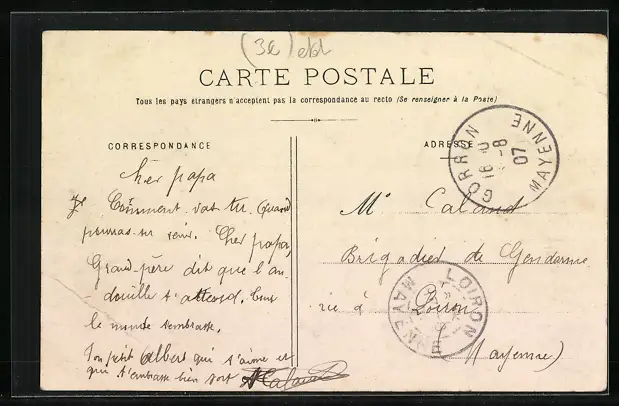 (3e)
CARTE POSTALE
Tous les pays étrangers n'acceptent pas la correspondance au recto (Se renseigner à la Poste)
CORRESPONDANCE
Cher papa
Comment vas tu. Quand
pourras-tu venir. Cher papa,
Grand-père dit que l'an-
douille t'attend. Tout
le monde t'embrasse.
Ton petit Albert qui t'aime et
qui t'embrasse bien fort
ADRESSE
Mr Caland
Brigadier de Gendarme
rie à Loiron
Mayenne)
GORRON
MAYENNE
16
8
07
LOIRON
MAYENNE